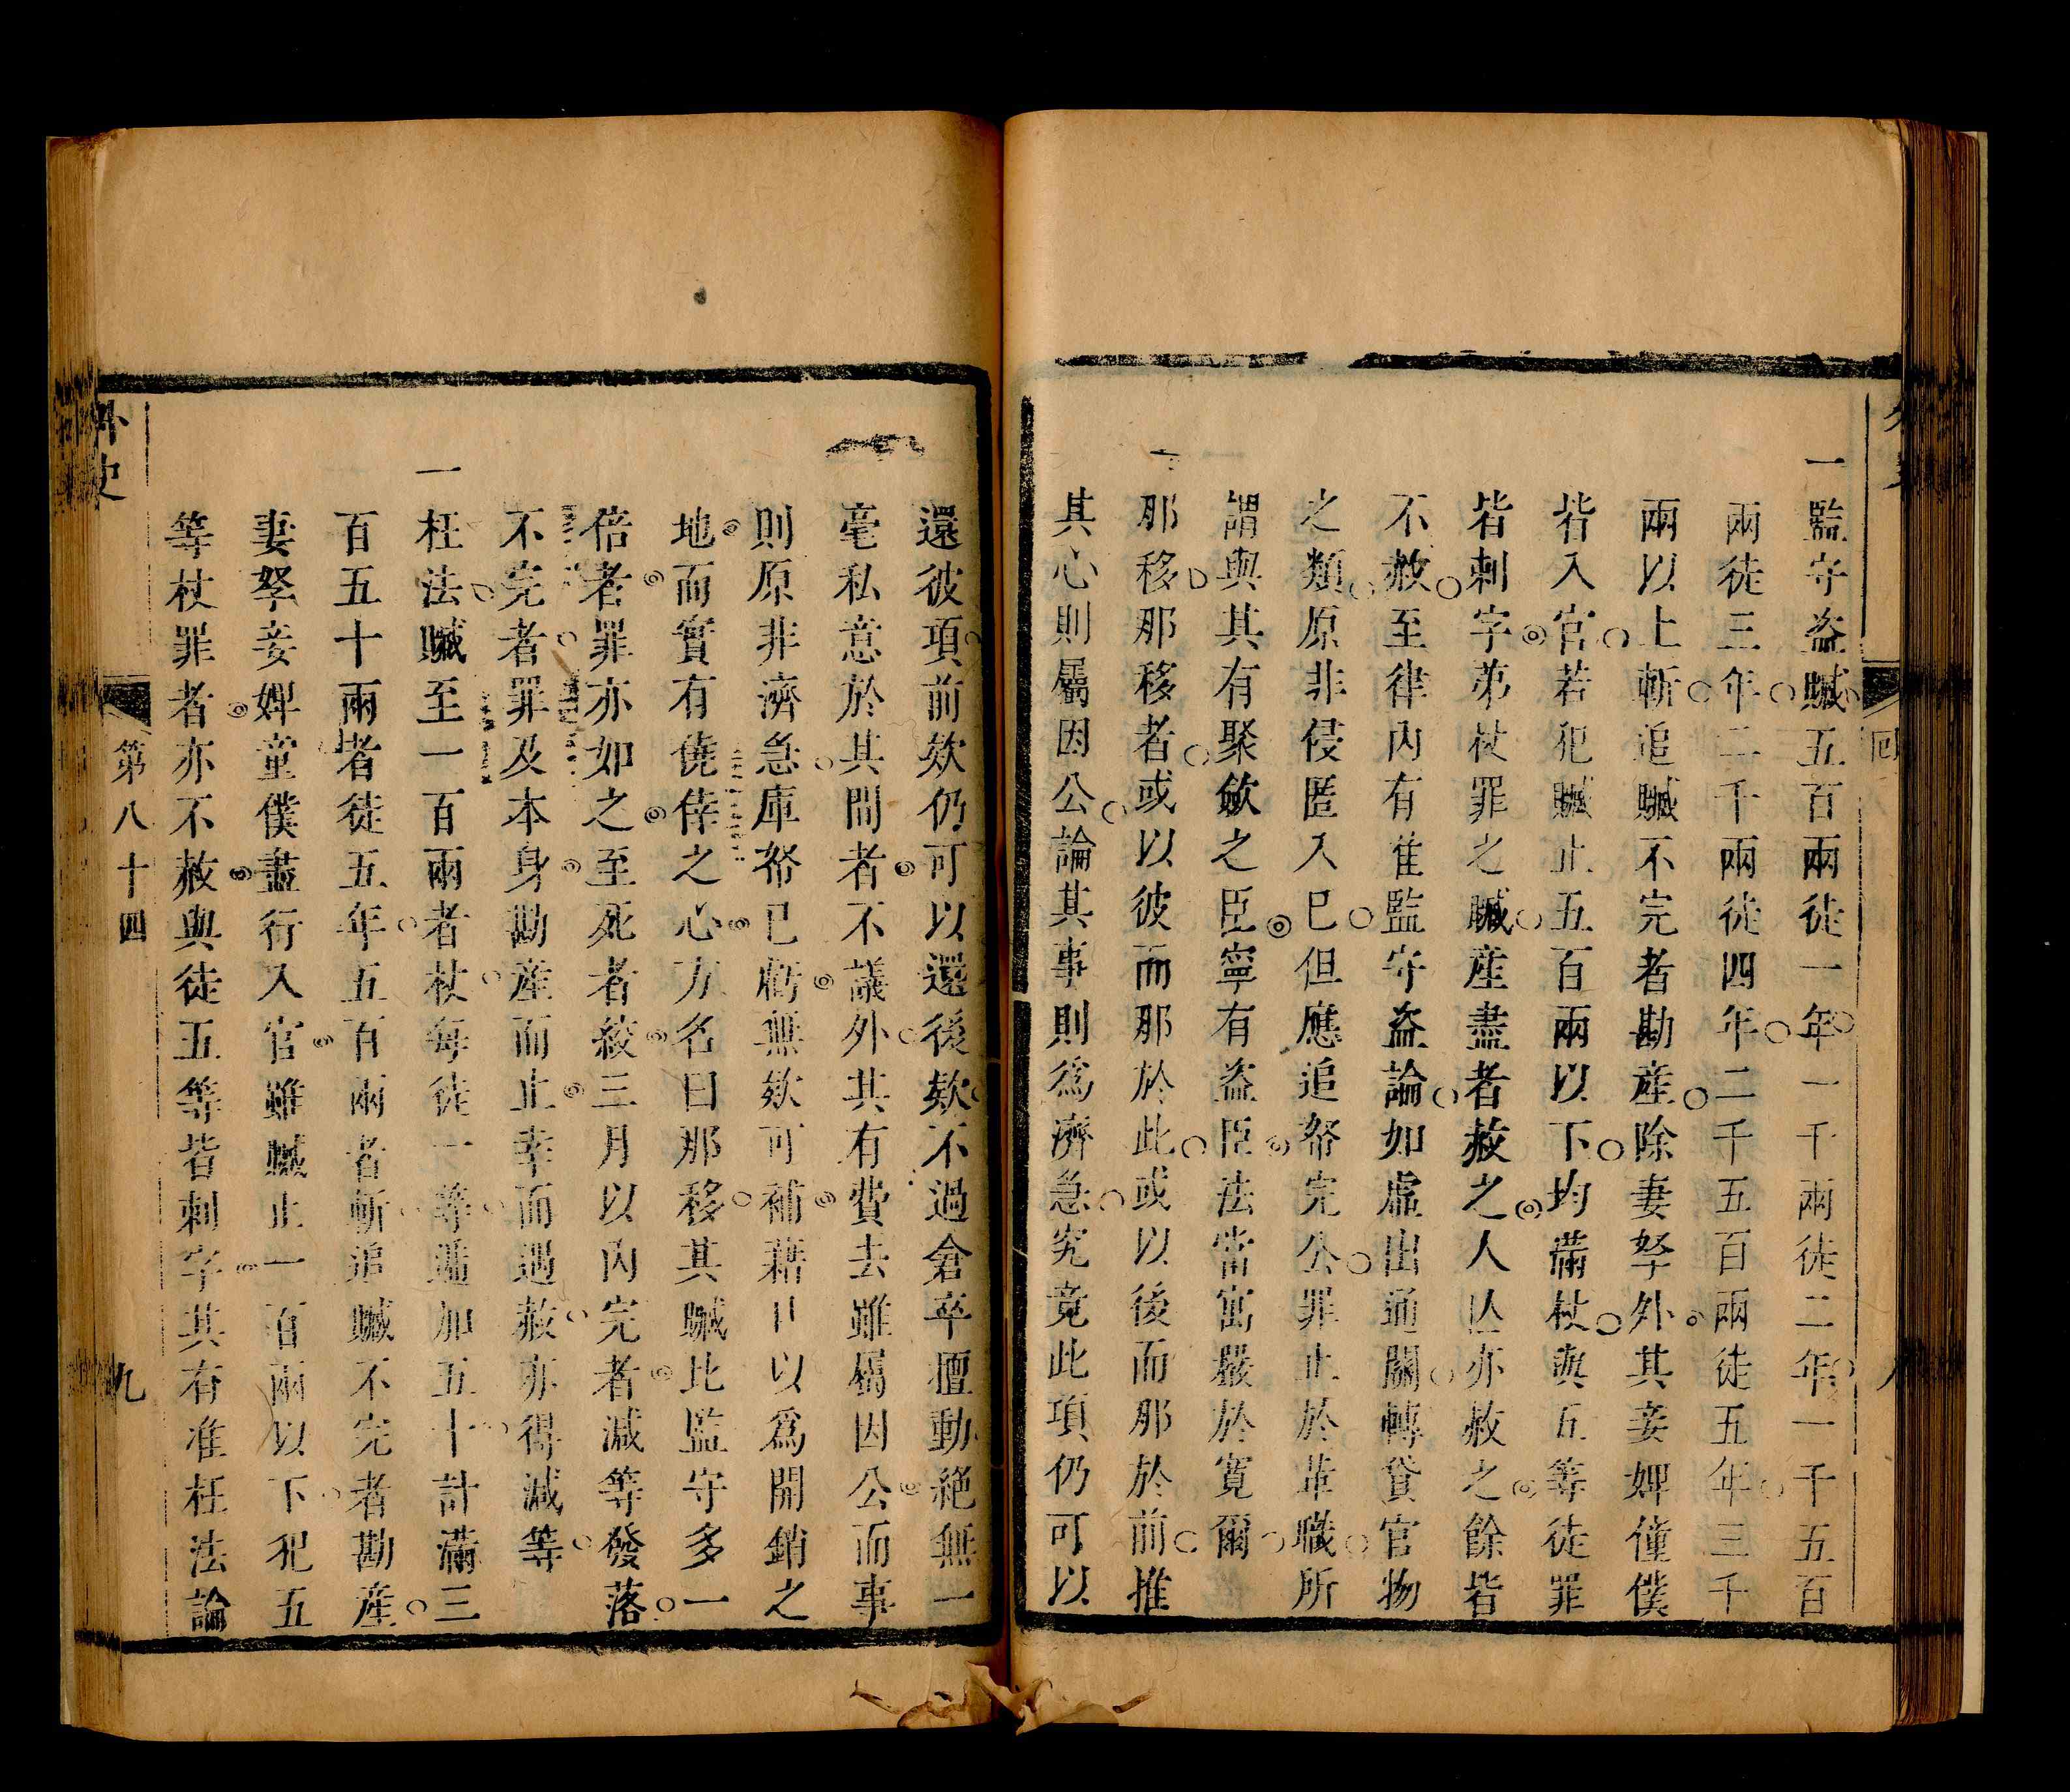 一監守盗贓五百兩徒一年一千兩徒二年一千五百
兩徒三年二千兩徒四年二千五百兩徒五年三千
兩以上斬追贓不完者勘産除妻孥外其妾婢僮僕
皆入官若犯贓止五百兩以下均滿杖與五等徒罪
皆刺字弟杖罪之贓産盡者赦之人亾亦赦之餘皆
不赦至律內有隹監守盗論如虛出通關轉貸官物
之類原非侵匿入已但應追帑完公罪止於革職所
謂與其有聚斂之臣寧有盗臣法當寓嚴於寛爾
一那移那移者或以彼而那於此或以後而那於前推
其心則屬因公論其事則為濟急究竟此項仍可以
還彼項前欵仍可以還後欵不過倉卒擅動絕無一
毫私意於其間者不議外其有費去雖屬因公而事
則原非濟急庫帑已虧無欵可補藉口以為開銷之
地而實有僥倖之心方名曰那移其贓比監守多一
倍者罪亦如之至死者絞三月以內完者減等發落
不完者罪及本身勘産而止幸而遇赦亦得減等
一枉法贓至一百兩者杖每徒一等遞加五十計滿三
百五十兩者徒五年五百兩者斬追贓不完者勘産
妻孥妾婢童僕盡行入官雖贓止一百兩以下犯五
等杖罪者亦不赦與徒五等皆刺字其有准枉法論
外史
第八十四
九